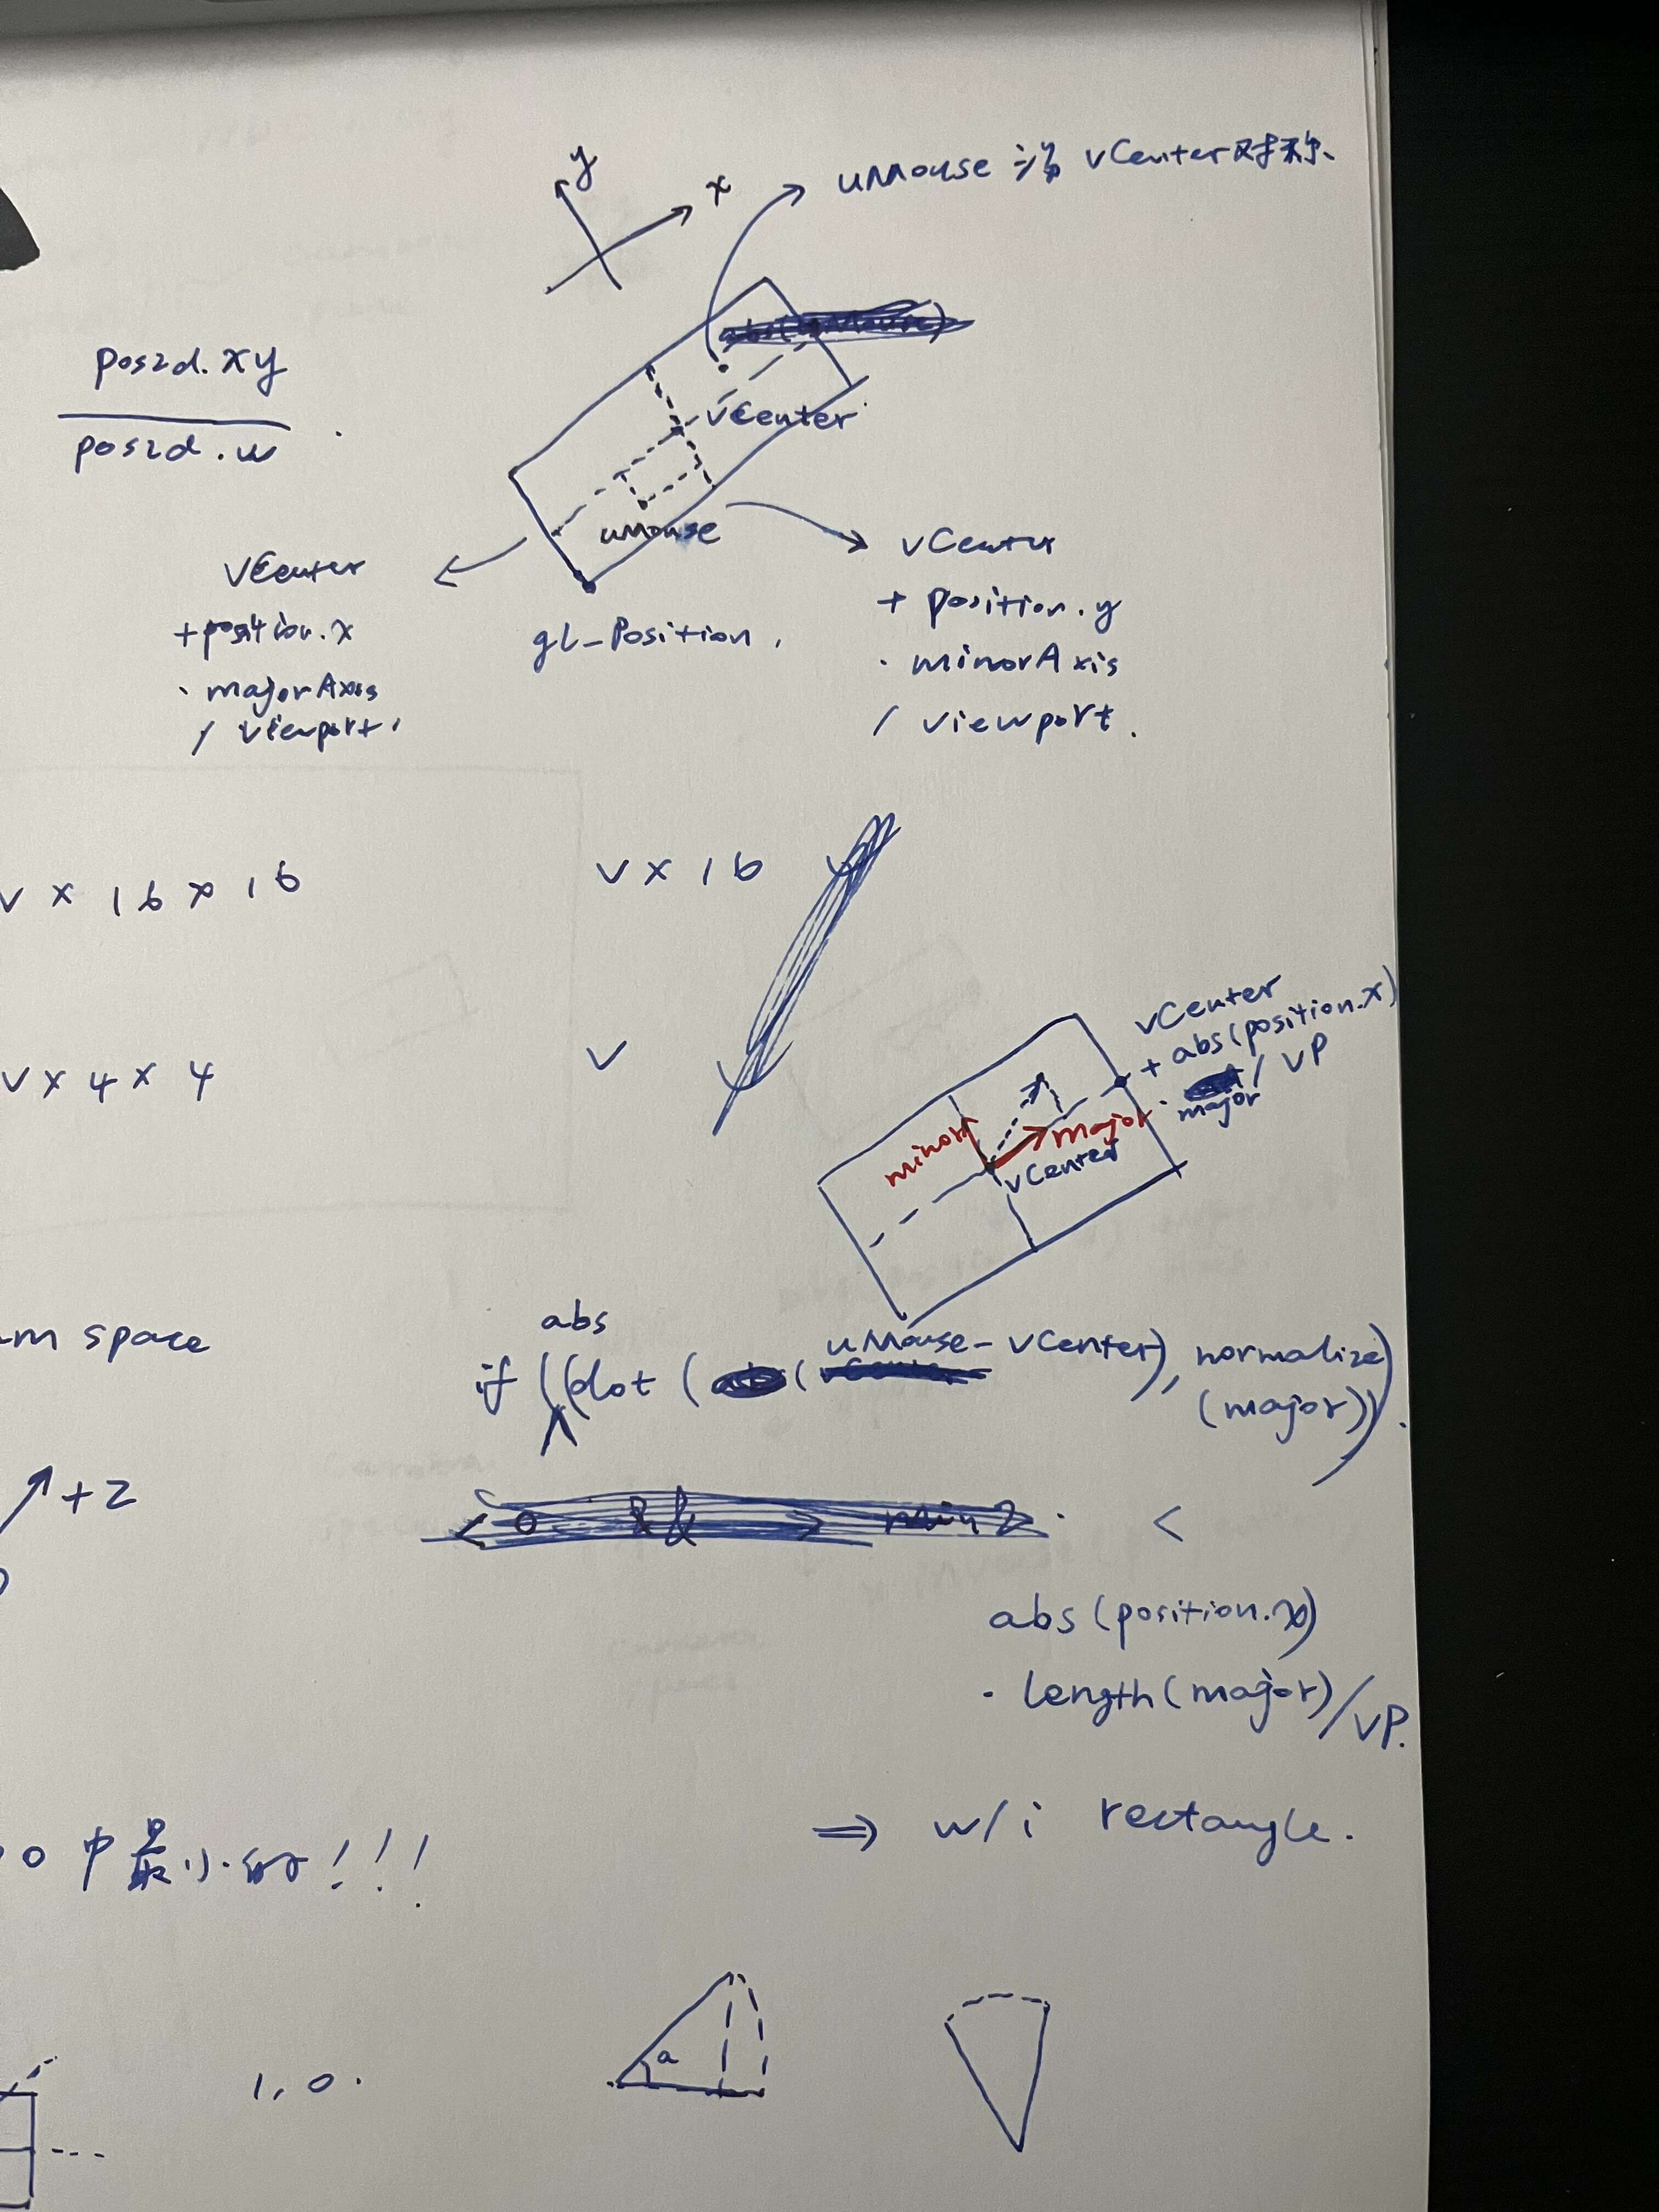 y
x
uMouse 沿 vCenter对称、
pos2d.xy
pos2d.w
vCenter
uMouse
vCenter
+position.x
· majorAxis
/ viewport.
gl_Position.
vCenter
+ position.y
· minorAxis
/ viewport.
v × 16 × 16
v × 16
v × 4 × 4
v
vCenter
+ abs(position.x)
· major / VP
minor
major
vCenter
space
abs
if ((dot ( (uMouse-vCenter), normalize
(major))).
+2
<
abs(position.x)
· length(major)/VP.
⇒ w/i rectangle.
0 中最小的!!!
a
1,0.